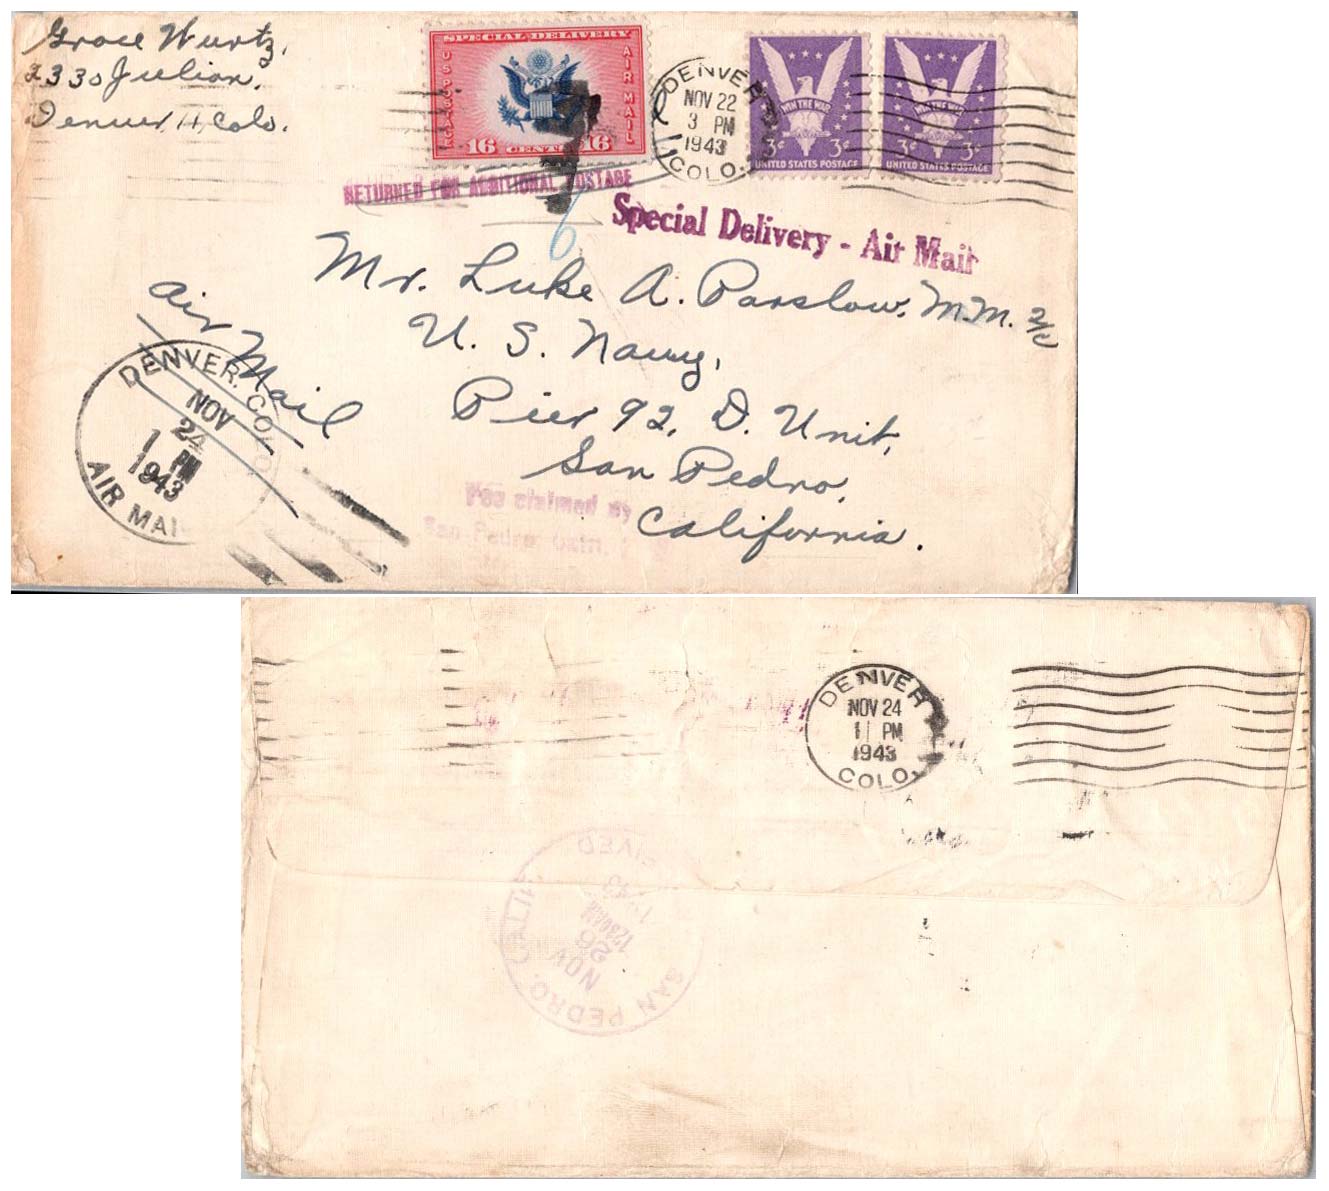 Grace Wurtz,
2330 Julian,
Denver 11, Colo.
SPECIAL DELIVERY
U S POSTAGE
AIR MAIL
16 CENTS 16
DENVER
NOV 22
3 PM
1943
COLO.
WIN THE WAR
3¢ 3¢
UNITED STATES POSTAGE
WIN THE WAR
3¢ 3¢
UNITED STATES POSTAGE
RETURNED FOR ADDITIONAL POSTAGE
6
Special Delivery - Air Mail
Mr. Luke A. Parslow, M.M. 2/c
U. S. Navy,
Pier 92, D. Unit,
San Pedro,
California.
Air
Mail
DENVER, COLO.
NOV
24
1 PM
1943
AIR MAIL
Fee claimed by
San Pedro, Calif.
DENVER
NOV 24
1 PM
1943
COLO.
SAN PEDRO, CALIF.
NOV
26
12 30 AM
1943